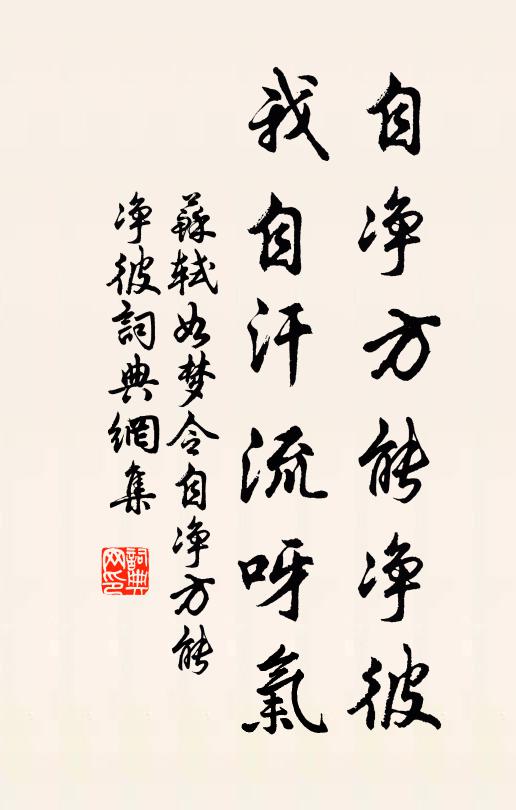 自净方能净彼
我自汗流呀氣
蘇軾如梦令自净方能
净彼詞典網集
詞典网印